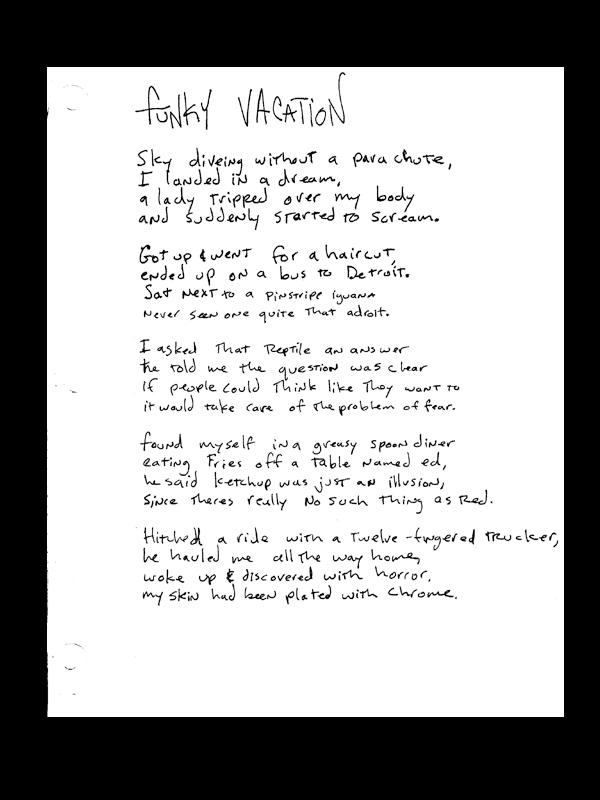 FUNKY VACATION
Sky diveing without a parachute,
I landed in a dream,
a lady tripped over my body
and suddenly started to scream.
Got up & went for a haircut,
ended up on a bus to Detroit.
Sat next to a pinstripe iguana
never seen one quite that adroit.
I asked that Reptile an answer
he told me the question was clear
if people could think like they want to
it would take care of the problem of fear.
found myself in a greasy spoon diner
eating fries off a table named ed,
he said ketchup was just an illusion,
since theres really no such thing as Red.
Hitched a ride with a twelve-fingered trucker,
he hauled me all the way home,
woke up & discovered with horror,
my skin had been plated with chrome.